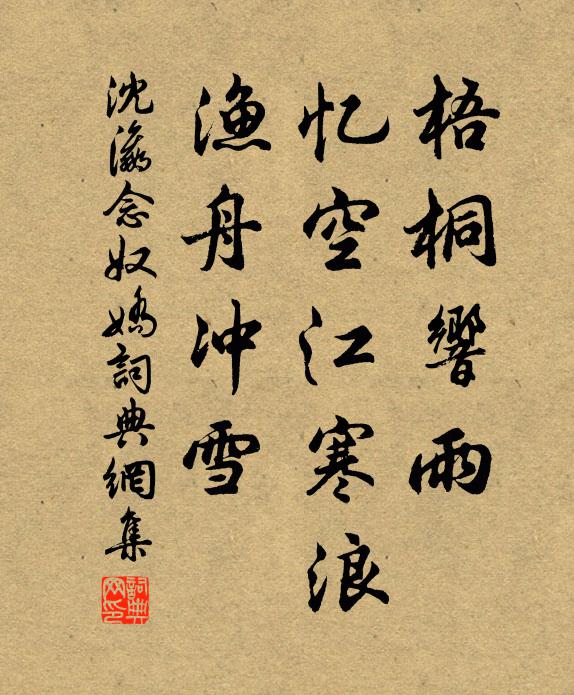 梧桐響雨
忆空江寒浪
渔舟冲雪
沈瀛念奴嬌詞典網集
詞典网印